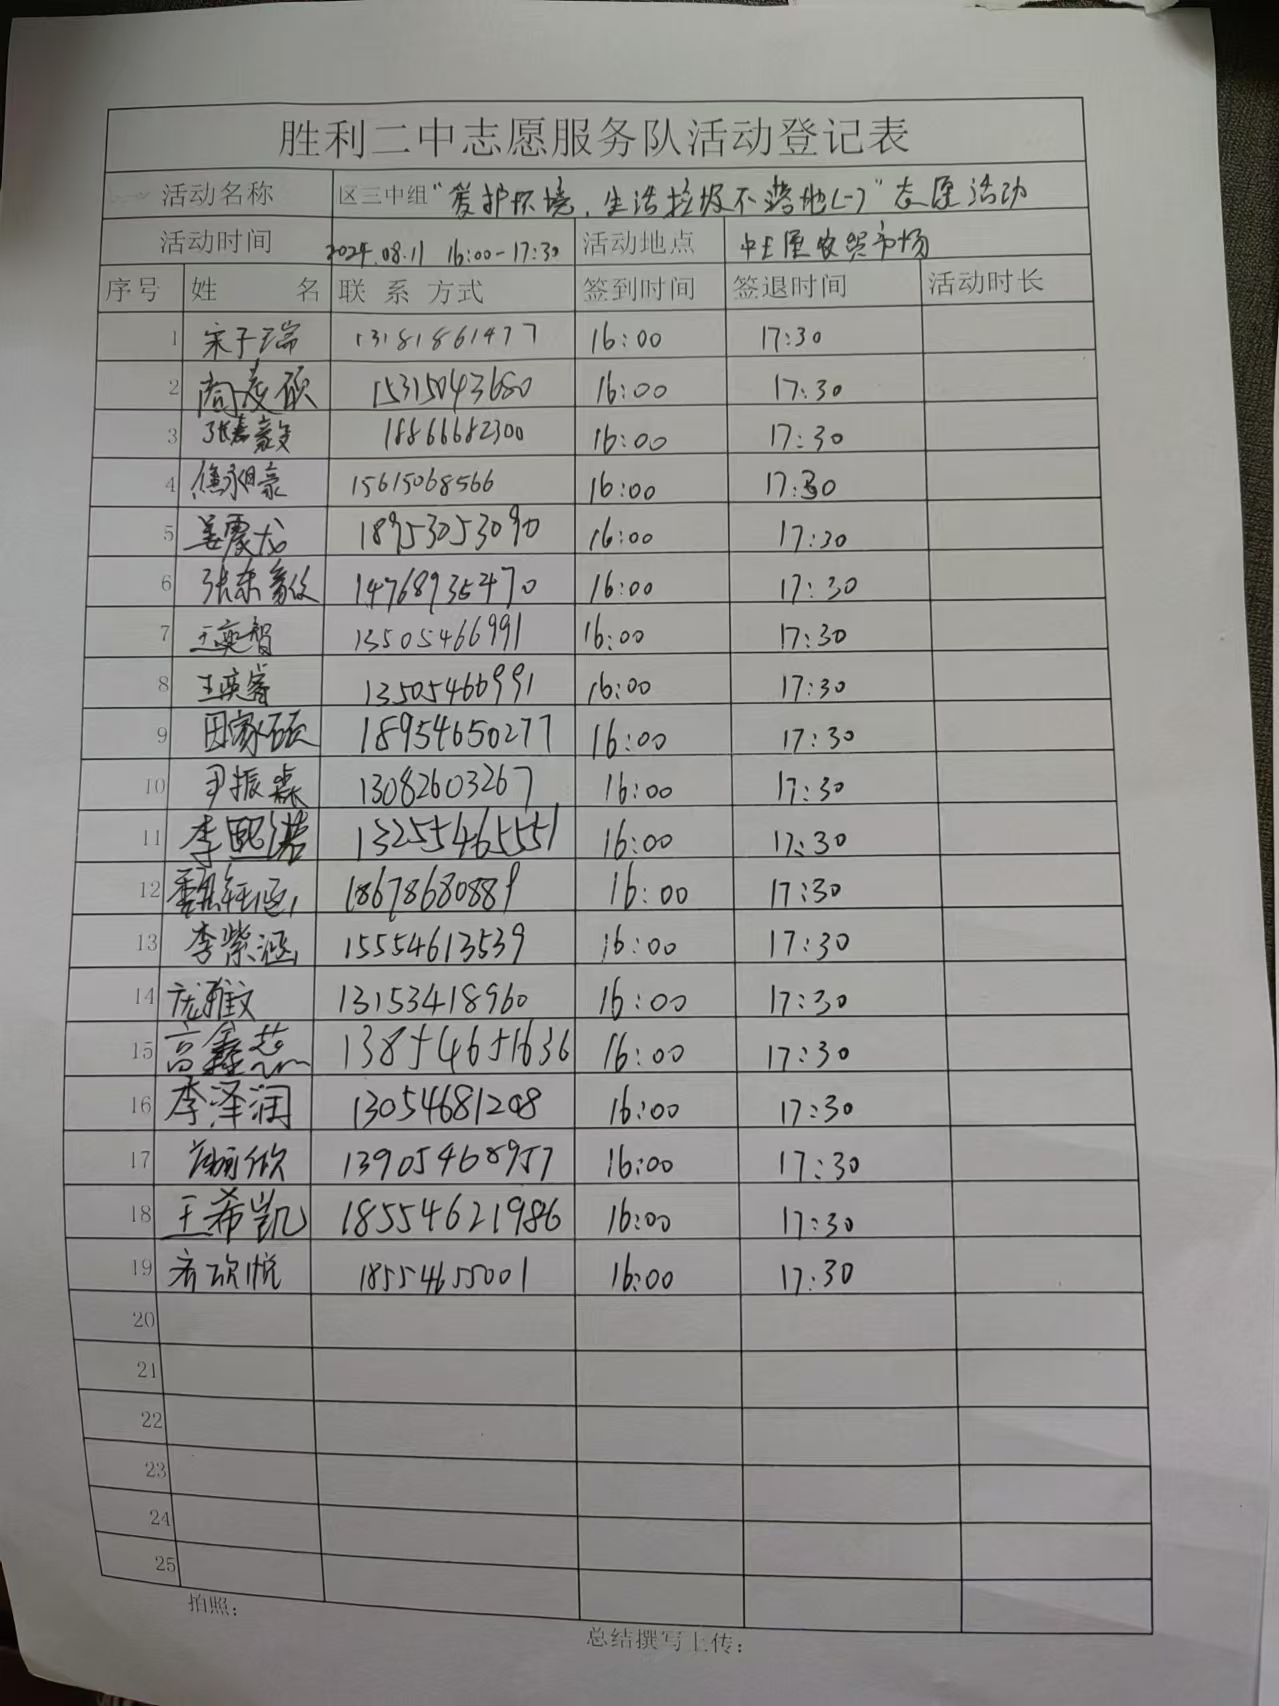 胜利二中志愿服务队活动登记表
活动名称 区三中组“爱护环境、生活垃圾不落地(一)”志愿活动
活动时间 2024.08.11 16:00-17:30 活动地点 农贸市场
序号 姓名 联系方式 签到时间 签退时间 活动时长
1 宋子瑞 13181861477 16:00 17:30
2 15315043680 16:00 17:30
3 张嘉毅 18866682300 16:00 17:30
4 15615068566 16:00 17:30
5 姜震龙 18953053090 16:00 17:30
6 张东 14768935470 16:00 17:30
7 王奕智 13505466991 16:00 17:30
8 王奕睿 13505466991 16:00 17:30
9 田家硕 18954650277 16:00 17:30
10 尹振淼 13082603267 16:00 17:30
11 李熙诺 13255465551 16:00 17:30
12 18678680889 16:00 17:30
13 李紫涵 15554613539 16:00 17:30
14 庞雅文 13153418960 16:00 17:30
15 高鑫蕊 13854651636 16:00 17:30
16 李泽润 13054681208 16:00 17:30
17 13905468957 16:00 17:30
18 王希凯 18554621986 16:00 17:30
19 18554655001 16:00 17:30
20
21
22
23
24
25
拍照：
总结撰写上传：